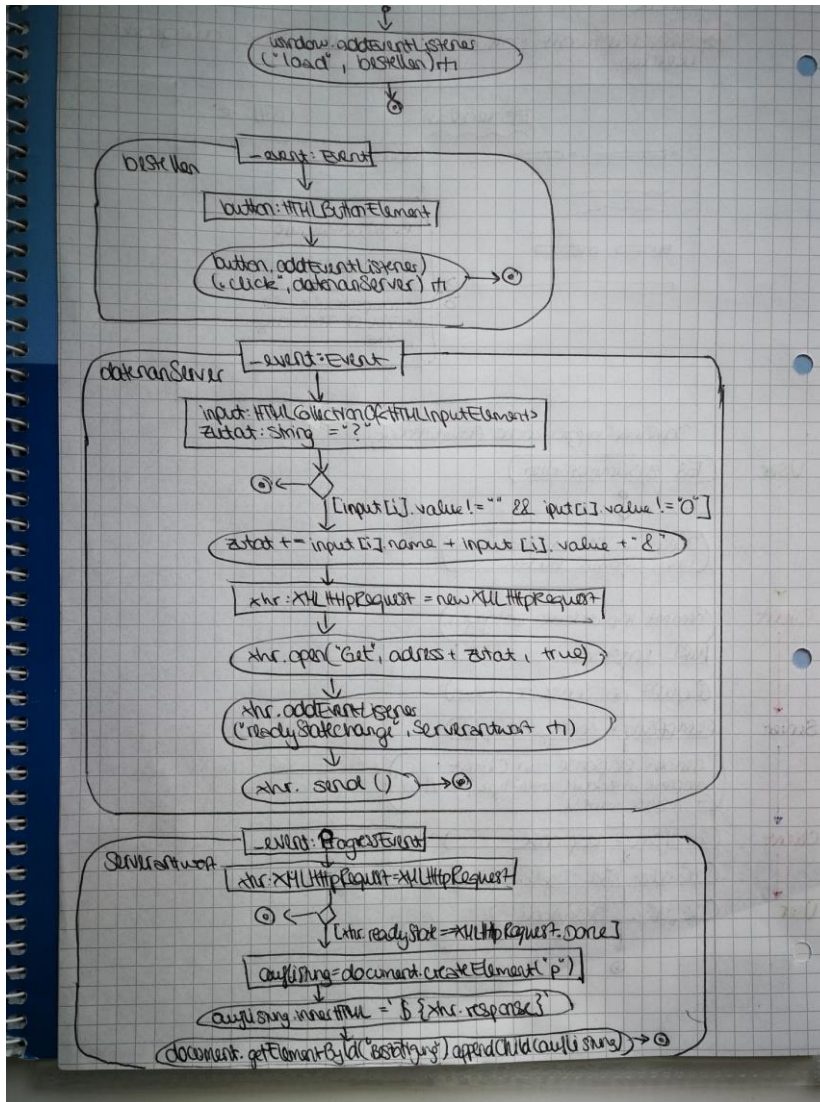 window.addEventListener
("load", bestellen)
bestellen
_event: Event
button: HTMLButtonElement
button.addEventListener)
("click", datenanServer)
datenanServer
_event: Event
input: HTMLCollectionOf<HTMLInputElement>
zutat: string = "?"
[input[i].value!="" && iput[i].value!="0"]
zutat += input[i].name + input[i].value + "&"
xhr: XMLHttpRequest = new XMLHttpRequest
xhr.open("Get", adress + zutat, true)
xhr.addEventListener
("readyStatechange", Serverantwort)
xhr. send ()
Serverantwort
_event: ProgressEvent
xhr: XMLHttpRequest=XMLHttpRequest
[xhr.readyState==XMLHttpRequest.Done]
auflistung=document.createElement("p")
auflistung.innerHTML = `${xhr.response}`
document.getElementById("Bestätigung").appendChild(auflistung)